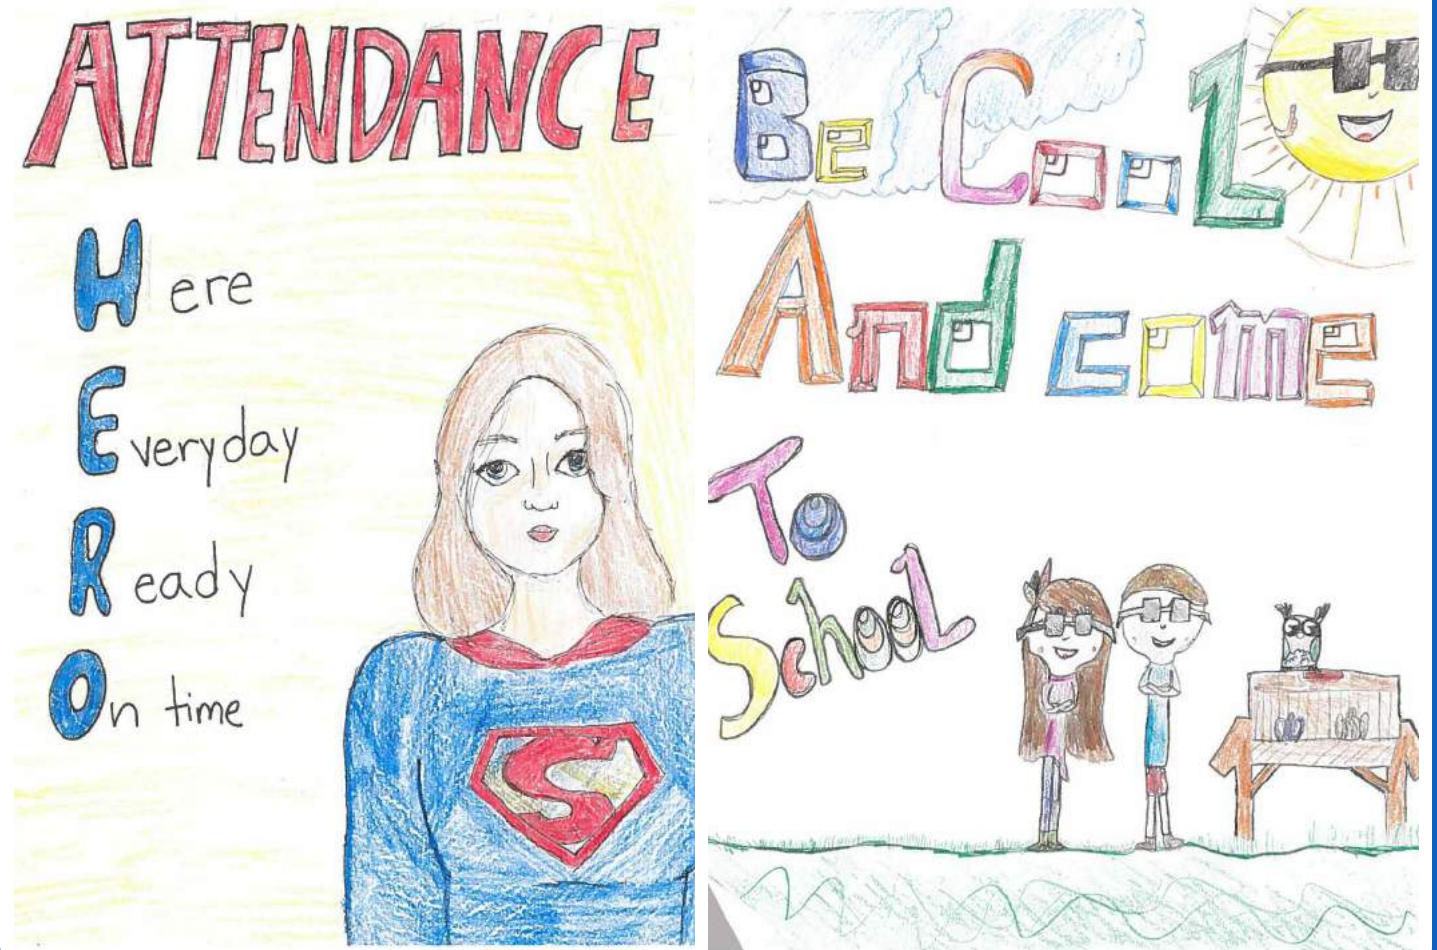 ATTENDANCE
Here
Everyday
Ready
On time
S
Be Cool
And come
To
School